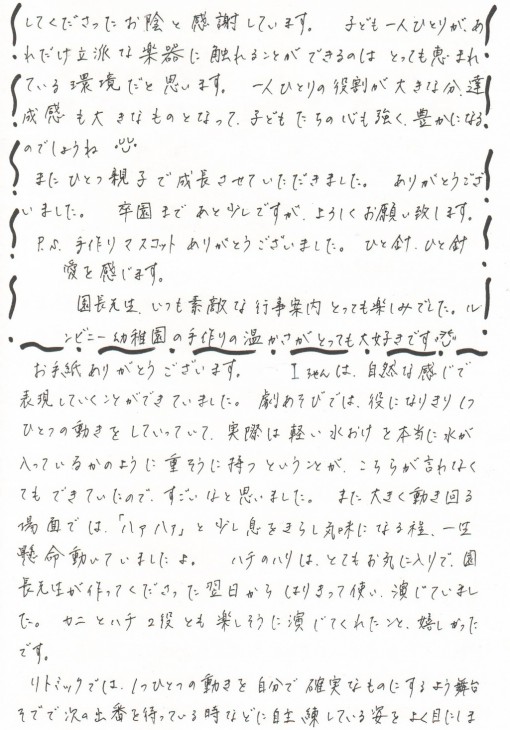 してくださったお陰と感謝しています。 子ども一人ひとりが、あ
れだけ立派な楽器に触れることができるのはとっても恵まれ
ている環境だと思います。 一人ひとりの役割が大きな分、達
成感も大きなものとなって、子どもたちの心も強く、豊かになる
のでしょうね
またひとつ親子で成長させていただきました。 ありがとうござ
いました。 卒園まであと少しですが、よろしくお願い致します。
P.S. 手作りマスコットありがとうございました。 ひと針、ひと針
愛を感じます。
園長先生、いつも素敵な行事案内とっても楽しみでした。ル
ンビニー幼稚園の手作りの温かさがとっても大好きです
お手紙ありがとうございます。 Iちゃんは、自然な感じで
表現していくことができていました。 劇あそびでは、役になりきり1つ
ひとつの動きをしていっていて、実際は軽い水おけを本当に水が
入っているかのように重そうに持つということが、こちらが言わなく
てもできていたので、すごいなと思いました。 また大きく動き回る
場面では、「ハァハァ」と少し息をきらし気味になる程、一生
懸命動いていましたよ。 ハチのハリは、とてもお気に入りで、園
長先生が作ってくださった翌日からはりきって使い、演じていまし
た。 カニとハチ2役とも楽しそうに演じてくれたこと、嬉しかった
です。
リトミックでは、1つひとつの動きを自分で確実なものにするよう舞台
そでで次の出番を待っている時などに自主練している姿をよく目にしま